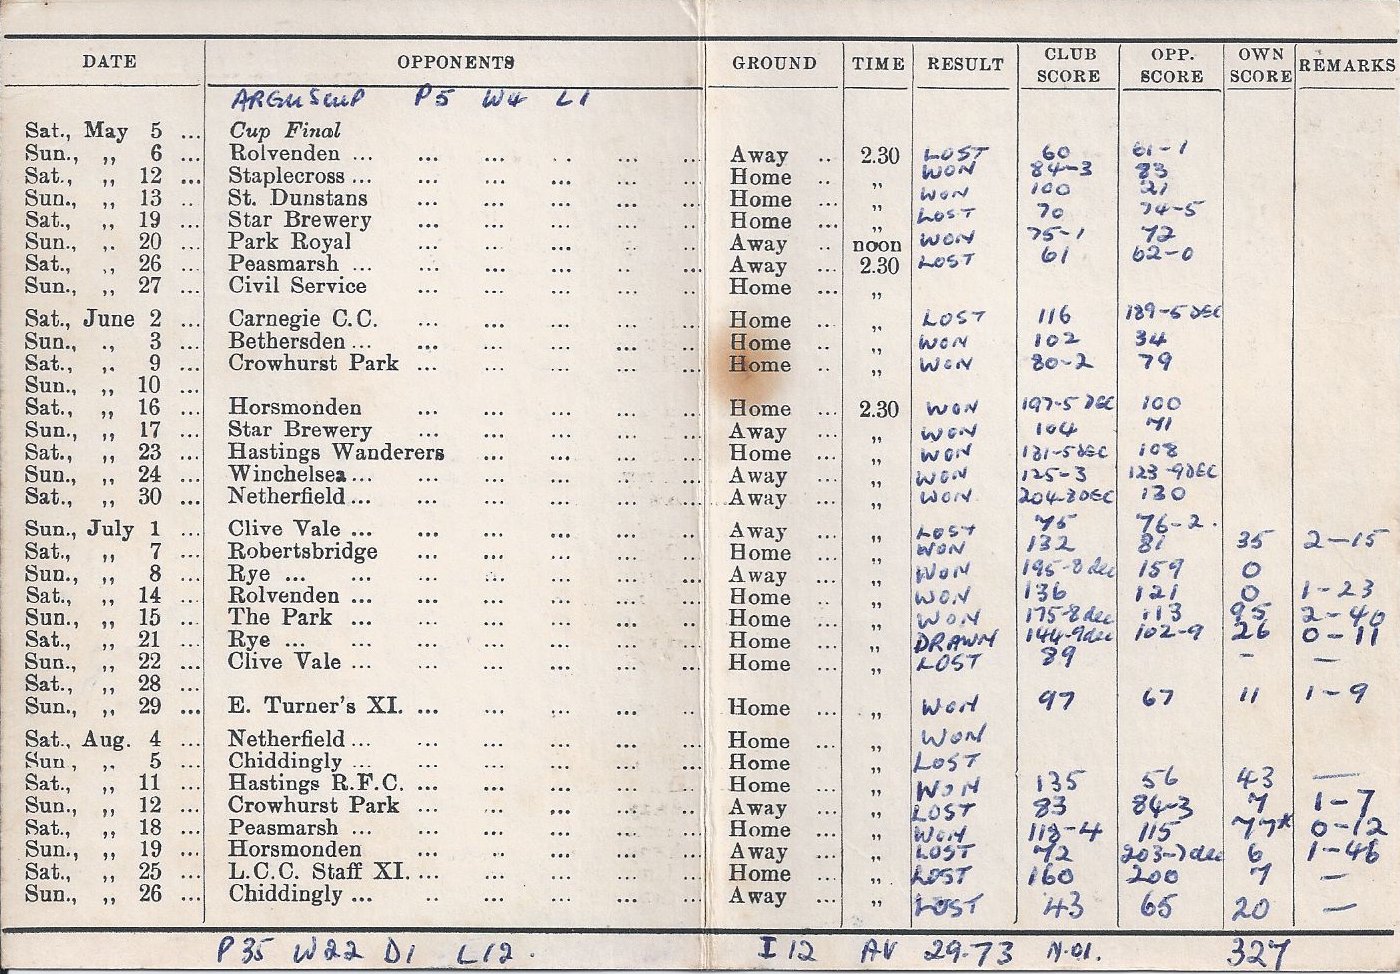 DATE OPPONENTS GROUND TIME RESULT CLUB SCORE OPP. SCORE OWN SCORE REMARKS
ARGUS CUP P5 W4 L1
Sat., May 5 ... Cup Final
Sun., ,, 6 ... Rolvenden ... Away 2.30 LOST 60 61-1
Sat., ,, 12 ... Staplecross ... Home ,, WON 84-3 83
Sun., ,, 13 ... St. Dunstans Home ,, WON 100 21
Sat., ,, 19 ... Star Brewery Home ,, LOST 70 74-5
Sun., ,, 20 ... Park Royal Away noon WON 75-1 72
Sat., ,, 26 ... Peasmarsh ... Away 2.30 LOST 61 62-0
Sun., ,, 27 ... Civil Service Home ,,
Sat., June 2 ... Carnegie C.C. Home ,, LOST 116 189-5 DEC
Sun., ,, 3 ... Bethersden ... Home ,, WON 102 34
Sat., ,, 9 ... Crowhurst Park ... Home ,, WON 80-2 79
Sun., ,, 10 ...
Sat., ,, 16 ... Horsmonden Home 2.30 WON 197-5 DEC 100
Sun., ,, 17 ... Star Brewery Away ,, WON 104 71
Sat., ,, 23 ... Hastings Wanderers Home ,, WON 181-5 DEC 108
Sun., ,, 24 ... Winchelsea ... Away ,, WON 125-3 123-9 DEC
Sat., ,, 30 ... Netherfield ... Away ,, WON 204-8 DEC 130
Sun., July 1 ... Clive Vale ... Away ,, LOST 75 76-2.
Sat., ,, 7 ... Robertsbridge Home ,, WON 132 81 35 2-15
Sun., ,, 8 ... Rye ... Away ,, WON 195-8 dec 159 0
Sat., ,, 14 ... Rolvenden ... Home ,, WON 136 121 0 1-23
Sun., ,, 15 ... The Park ... Home ,, WON 175-8 dec 113 95 2-40
Sat., ,, 21 ... Rye ... Home ,, DRAWN 144-9 dec 102-9 26 0-11
Sun., ,, 22 ... Clive Vale ... Home ,, LOST 89 - -
Sat., ,, 28 ...
Sun., ,, 29 ... E. Turner's XI. ... Home ,, WON 97 67 11 1-9
Sat., Aug. 4 ... Netherfield ... Home ,, WON
Sun , ,, 5 ... Chiddingly ... Home ,, LOST
Sat., ,, 11 ... Hastings R.F.C. ... Home ,, WON 135 56 43 —
Sun., ,, 12 ... Crowhurst Park ... Away ,, LOST 83 84-3 7 1-7
Sat., ,, 18 ... Peasmarsh ... Home ,, WON 118-4 115 77* 0-12
Sun., ,, 19 ... Horsmonden Away ,, LOST 72 203-7 dec 6 1-46
Sat., ,, 25 ... L.C.C. Staff XI. ... Home ,, LOST 160 200 7 -
Sun., ,, 26 ... Chiddingly ... Away ,, LOST 43 65 20 —
P35 W22 D1 L12. I 12 AV 29-73 N.O1. 327